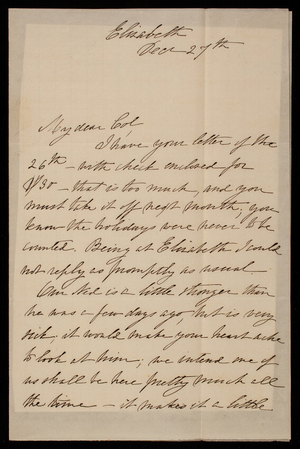 Elizabeth
Decr 27th
My dear Col,
I have your letter of the
26th - with check enclosed for
$130 - that is too much, and you
must take it off next month; you
know the holidays were never to be
counted. Being at Elizabeth I could
not reply as promptly as usual -
Our Ned is a little stronger than
he was a few days ago, but is very
sick, it would make your heart ache
to look at him; we intend one of
us shall be here pretty much all
the time - it makes it a little